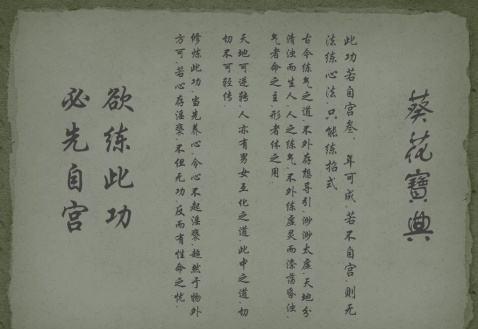 葵花寶典
此功若自宫叁、年可成、若不自宫、则无
法练心法、只能练招式
古今练气之道、不外存想导引、渺渺太虚、天地分
清浊而生人、人之练气、不外练虚灵而涤荡昏浊、
气者命之主、形者体之用
天地可逆转、人亦有男女互化之道、此中之道、切
切不可轻传、
修炼此功、当先养心、令心不起淫亵、超然于物外
方可、若心存淫亵、不但无功、反而有性命之忧、
欲练此功
必先自宫